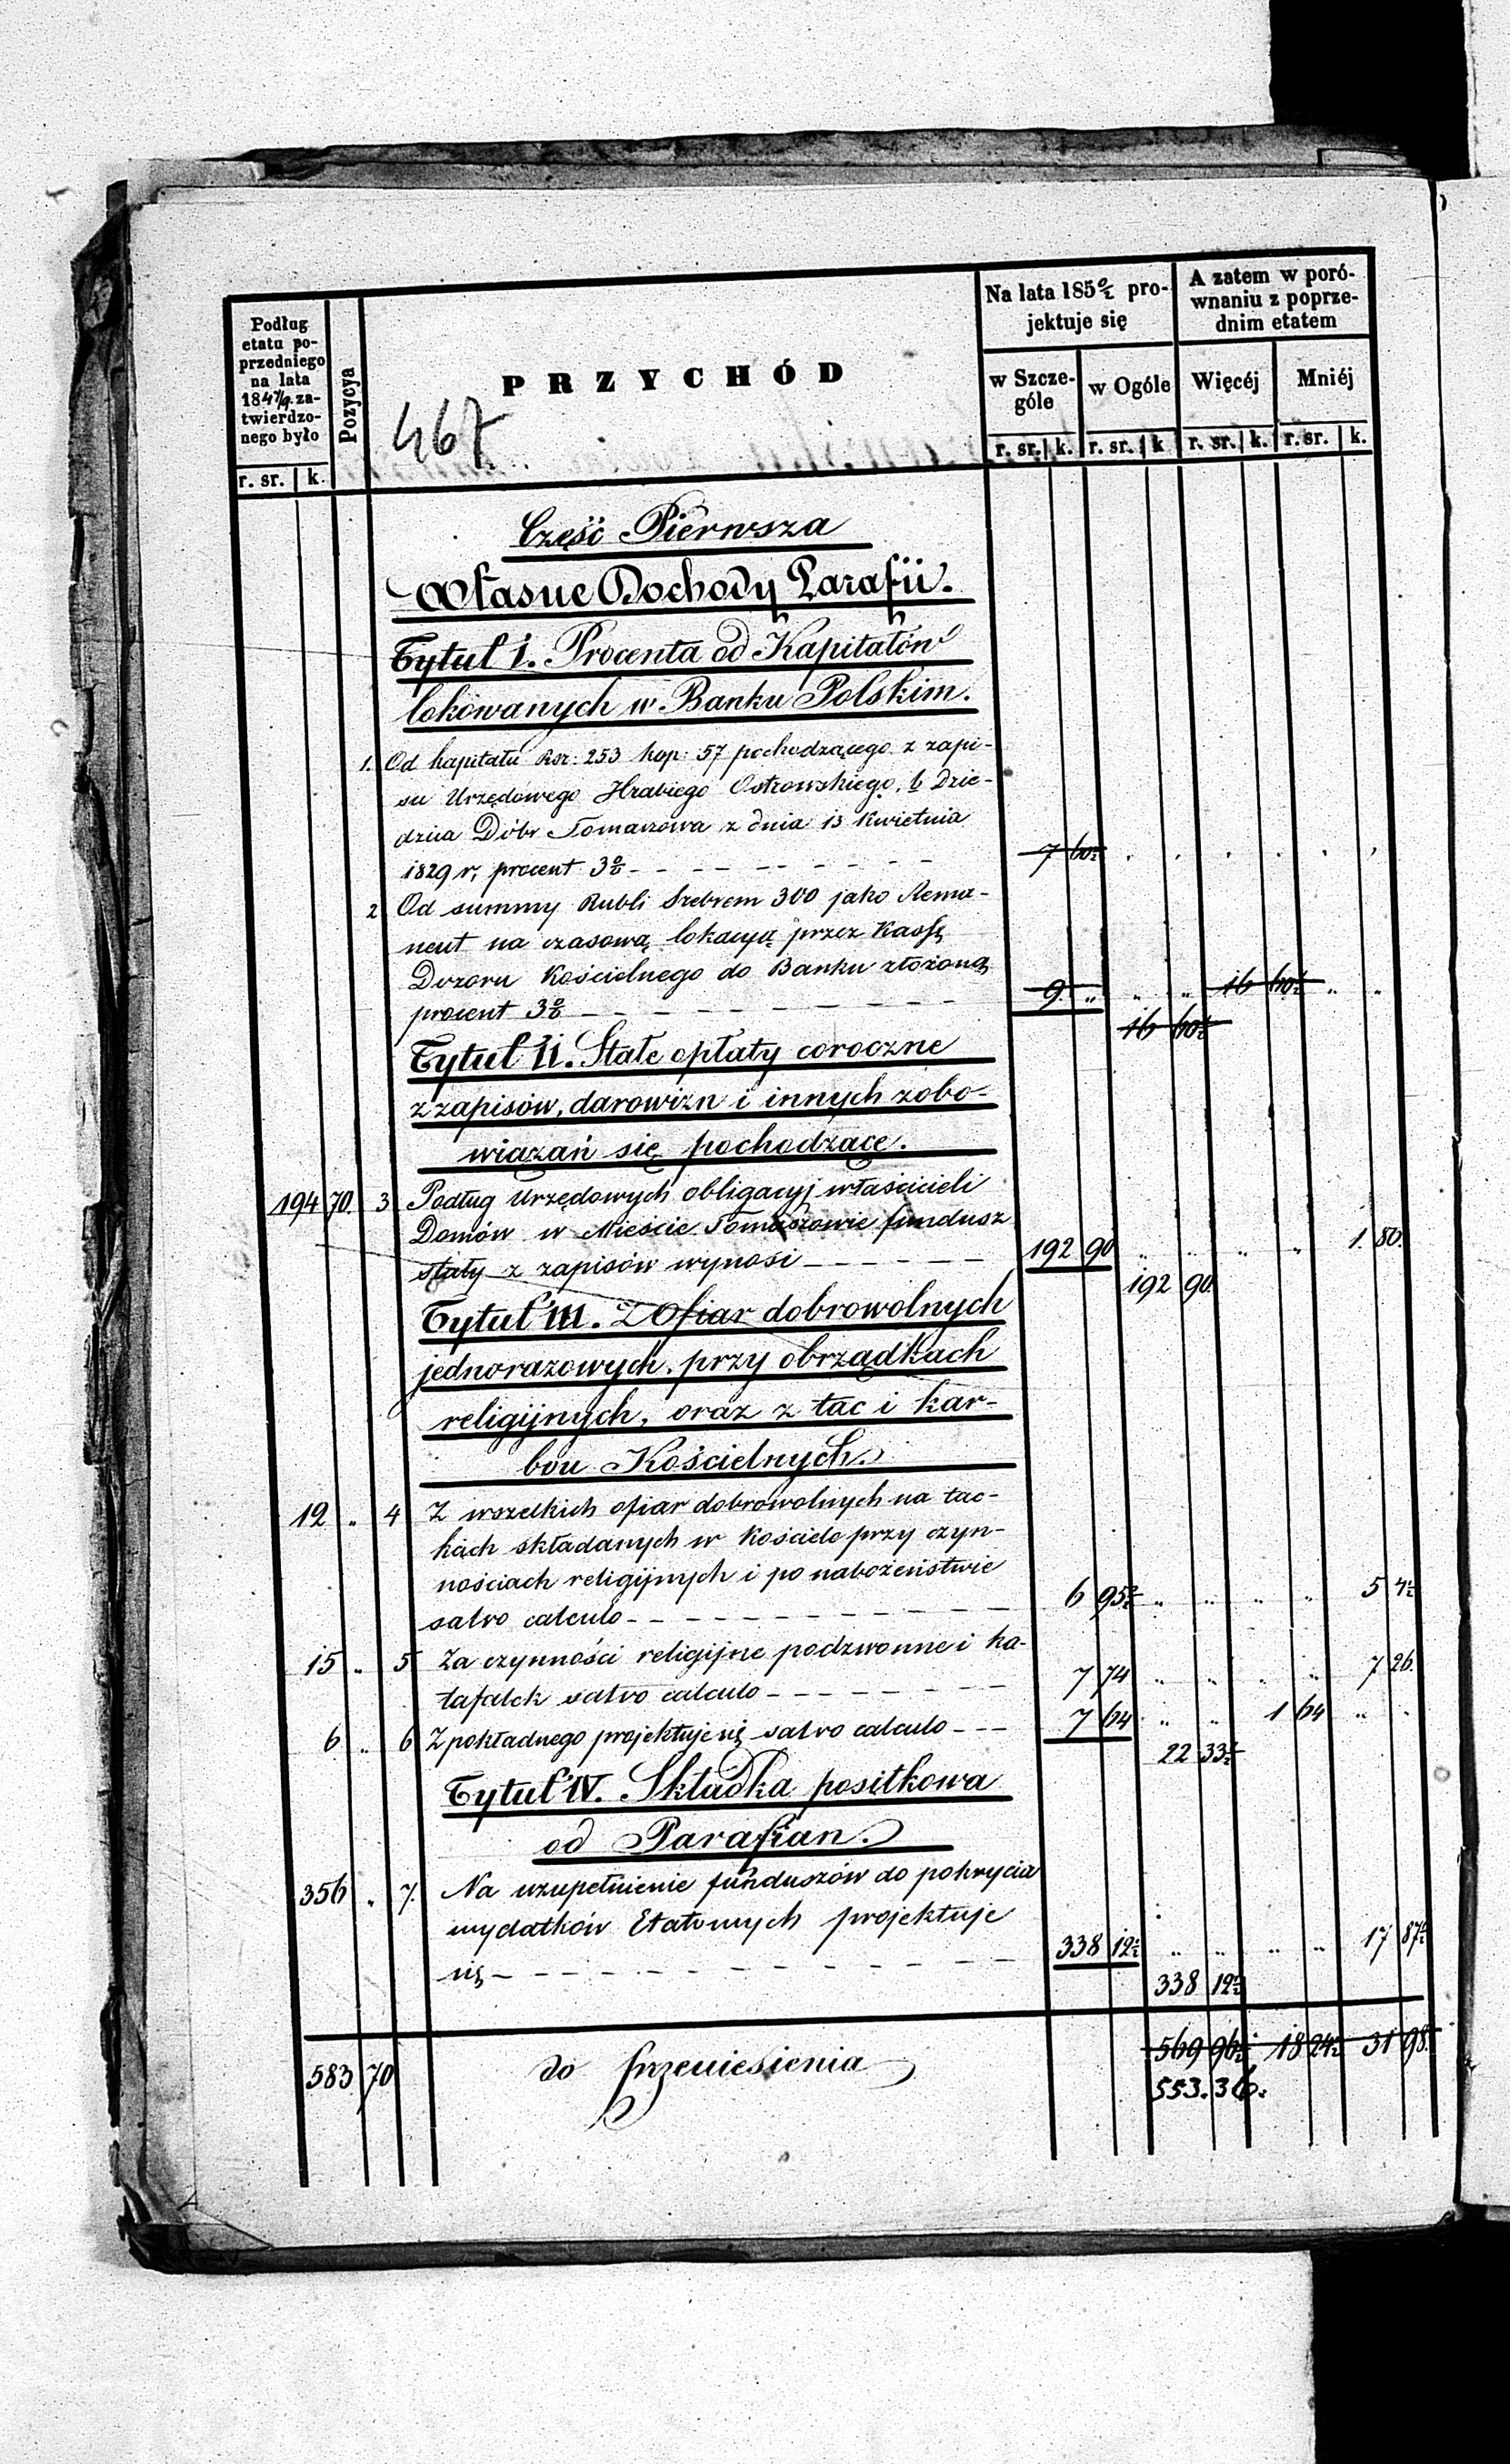 Podług etatu poprzedniego na lata 184 7/9 zatwierdzonego było
Pozycya
PRZYCHÓD
Na lata 185 0/2 projektuje się
A zatem w porównaniu z poprzednim etatem
w Szczególe
w Ogóle
Więcéj
Mniéj
r. sr. k. r. sr. k. r. sr. k r. sr. k. r. sr. k.
467
Część Pierwsza
Własne Dochody Parafii.
Tytuł I. Procenta od Kapitałów
lokowanych w Banku Polskim.
1. Od kapitału Rsr: 253 kop: 57 pochodzącego z zapi-
su Urzędowego Hrabiego Ostrowskiego, b Dzie-
dzica Dóbr Tomaszowa z dnia 13 Kwietnia
1829 r, procent 3% - - - - 7 60½
2 Od summy Rubli Srebrem 300 jako Rema-
nent na czasową lokacyą przez Kassę
Dozoru Kościelnego do Banku złożoną
procent 3% - - - - 9 „ „ „ 16 60½ „ „
16 60½
Tytuł II. Stałe opłaty coroczne
z zapisów, darowizn i innych zobo-
wiązań się pochodzące.
194 70. 3 Podług Urzędowych obligacyj właścicieli
Domów w Mieście Tomaszowie fundusz
stały z zapisów wynosi - - - - 192 90 „ „ „ „ 1. 80.
192 90.
Tytuł III. Z Ofiar dobrowolnych
jednorazowych, przy obrządkach
religijnych, oraz z tac i kar-
bon Kościelnych.
12 „ 4 Z wszelkich ofiar dobrowolnych na tac-
kach składanych w Kościele przy czyn-
nościach religijnych i po nabożeństwie
salvo calculo - - - - 6 95½ „ „ „ „ 5 4½
15 „ 5 Za czynności religijne podzwonne i ka-
tafalek salvo calculo - - - - 7 74 „ „ „ „ 7 26.
6 „ 6 Z pokładnego projektuje się salvo calculo - - - 7 64 „ „ 1 64 „ „
22 33½
Tytuł IV. Składka posiłkowa
od Parafian.
356 „ 7. Na uzupełnienie funduszów do pokrycia
wydatków Etatowych projektuje
się - - - - 338 12½ „ „ „ „ 17 87½
338 12½
569 96½ 18 24½ 31 98.
583 70 do przeniesienia
553. 36.